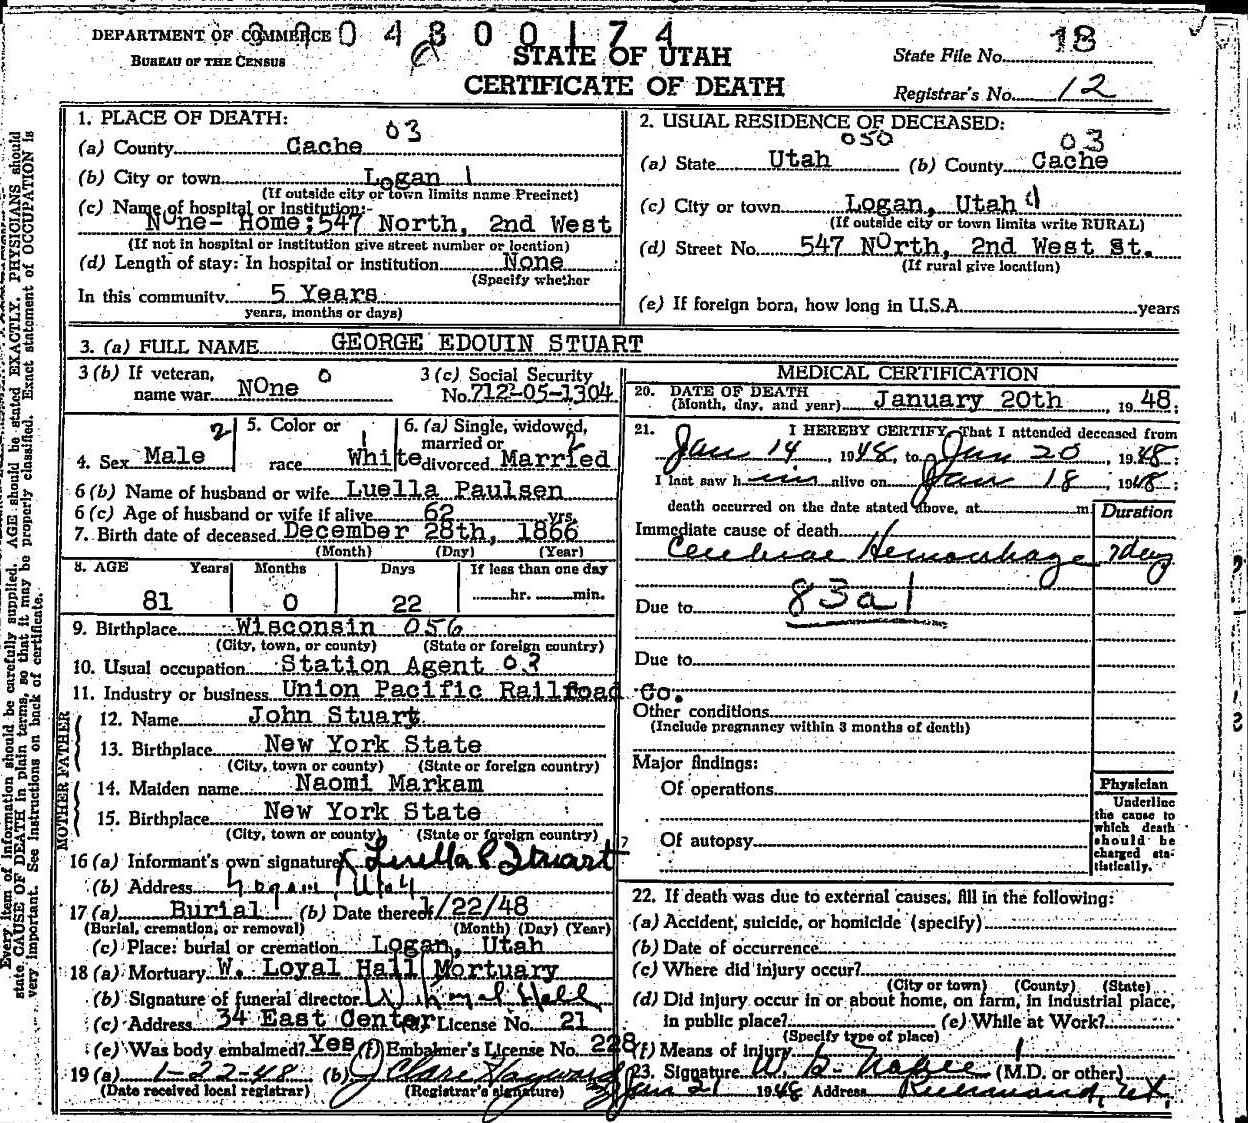 DEPARTMENT OF COMMERCE 0 4 8 0 0 1 7 4
BUREAU OF THE CENSUS
STATE OF UTAH
CERTIFICATE OF DEATH
State File No. 18
Registrar's No. 12
1. PLACE OF DEATH: 03
(a) County Cache
(b) City or town Logan 1
(If outside city or town limits name Precinct)
(c) Name of hospital or institution:-
NOne- Home;547 North, 2nd West
(If not in hospital or institution give street number or location)
(d) Length of stay: In hospital or institution None
(Specify whether
In this community 5 Years
years, months or days)
2. USUAL RESIDENCE OF DECEASED:
050 03
(a) State Utah (b) County Cache
(c) City or town Logan, Utah
(If outside city or town limits write RURAL)
(d) Street No. 547 NOrth, 2nd West St.
(If rural give location)
(e) If foreign born, how long in U.S.A. years
3. (a) FULL NAME GEORGE EDOUIN STUART
3 (b) If veteran, 0
name war NOne
3 (c) Social Security
No. 712-05-1304
4. Sex Male 2
5. Color or 1
race White
6. (a) Single, widowed,
married or 2
divorced Married
6 (b) Name of husband or wife Luella Paulsen
6 (c) Age of husband or wife if alive 62 yrs.
7. Birth date of deceased December 28th, 1866
(Month) (Day) (Year)
8. AGE Years Months Days If less than one day
81 0 22 hr. min.
9. Birthplace Wisconsin 056
(City, town, or county) (State or foreign country)
10. Usual occupation Station Agent 03
11. Industry or business Union Pacific Railroad Co.
FATHER
12. Name John Stuart
13. Birthplace New York State
(City, town or county) (State or foreign country)
MOTHER
14. Maiden name Naomi Markam
15. Birthplace New York State
(City, town or county) (State or foreign country)
16 (a) Informant's own signature X Luella P Stuart
(b) Address Logan, Utah
17 (a) Burial (b) Date thereof 1/22/48
(Burial, cremation, or removal) (Month) (Day) (Year)
(c) Place: burial or cremation Logan, Utah
18 (a) Mortuary W. Loyal Hall Mortuary
(b) Signature of funeral director W Loyal Hall
(c) Address 34 East Center License No. 21
(e) Was body embalmed? Yes (f) Embalmer's License No. 228
19 (a) 1-22-48 (b)
(Date received local registrar) (Registrar's signature)
MEDICAL CERTIFICATION
20. DATE OF DEATH
(Month, day, and year) January 20th, 1948;
21. I HEREBY CERTIFY, That I attended deceased from
Jan 14, 1948, to Jan 20, 1948;
I last saw him alive on Jan 18, 1948;
death occurred on the date stated above, at m
Duration
Immediate cause of death
Cerebral Hemorrhage 7 days
Due to 83a1
Due to
Other conditions
(Include pregnancy within 3 months of death)
Major findings:
Of operations
Of autopsy
Physician
Underline
the cause to
which death
should be
charged sta-
tistically.
22. If death was due to external causes, fill in the following:
(a) Accident, suicide, or homicide (specify)
(b) Date of occurrence
(c) Where did injury occur?
(City or town) (County) (State)
(d) Did injury occur in or about home, on farm, in industrial place,
in public place? (e) While at Work?
(Specify type of place)
(f) Means of injury 1
23. Signature (M.D. or other)
Jan 21 1948 Address Richmond, Ut.
Every item of information should be carefully supplied. AGE should be stated EXACTLY. PHYSICIANS should
state CAUSE OF DEATH in plain terms, so that it may be properly classified. Exact statement of OCCUPATION is
very important. See instructions on back of certificate.